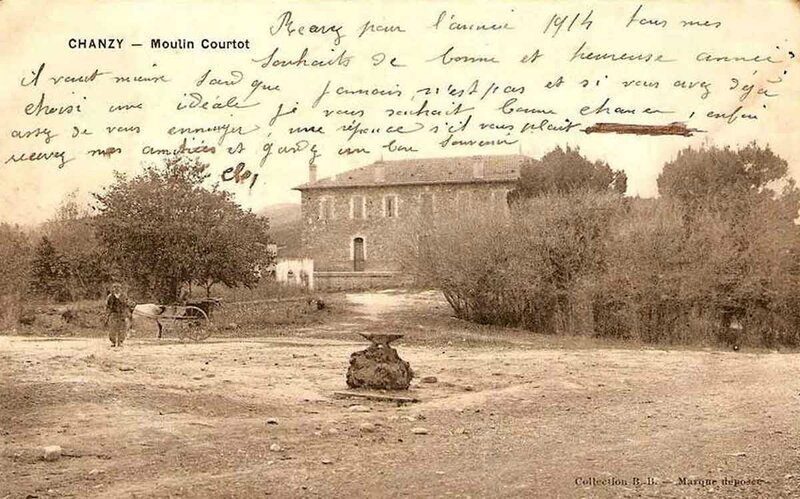 CHANZY — Moulin Courtot
Recevez pour l'année 1914 tous mes
souhaits de bonne et heureuse année
il vaut mieux tard que jamais, n'est pas et si vous avez déjà
choisi une idéale je vous souhait bonne chance, enfin
assez de vous ennuyer, une réponse s'il vous plait
recevez mes amitiées et gardez un bon souvenir
Collection B.-B. — Marque déposée